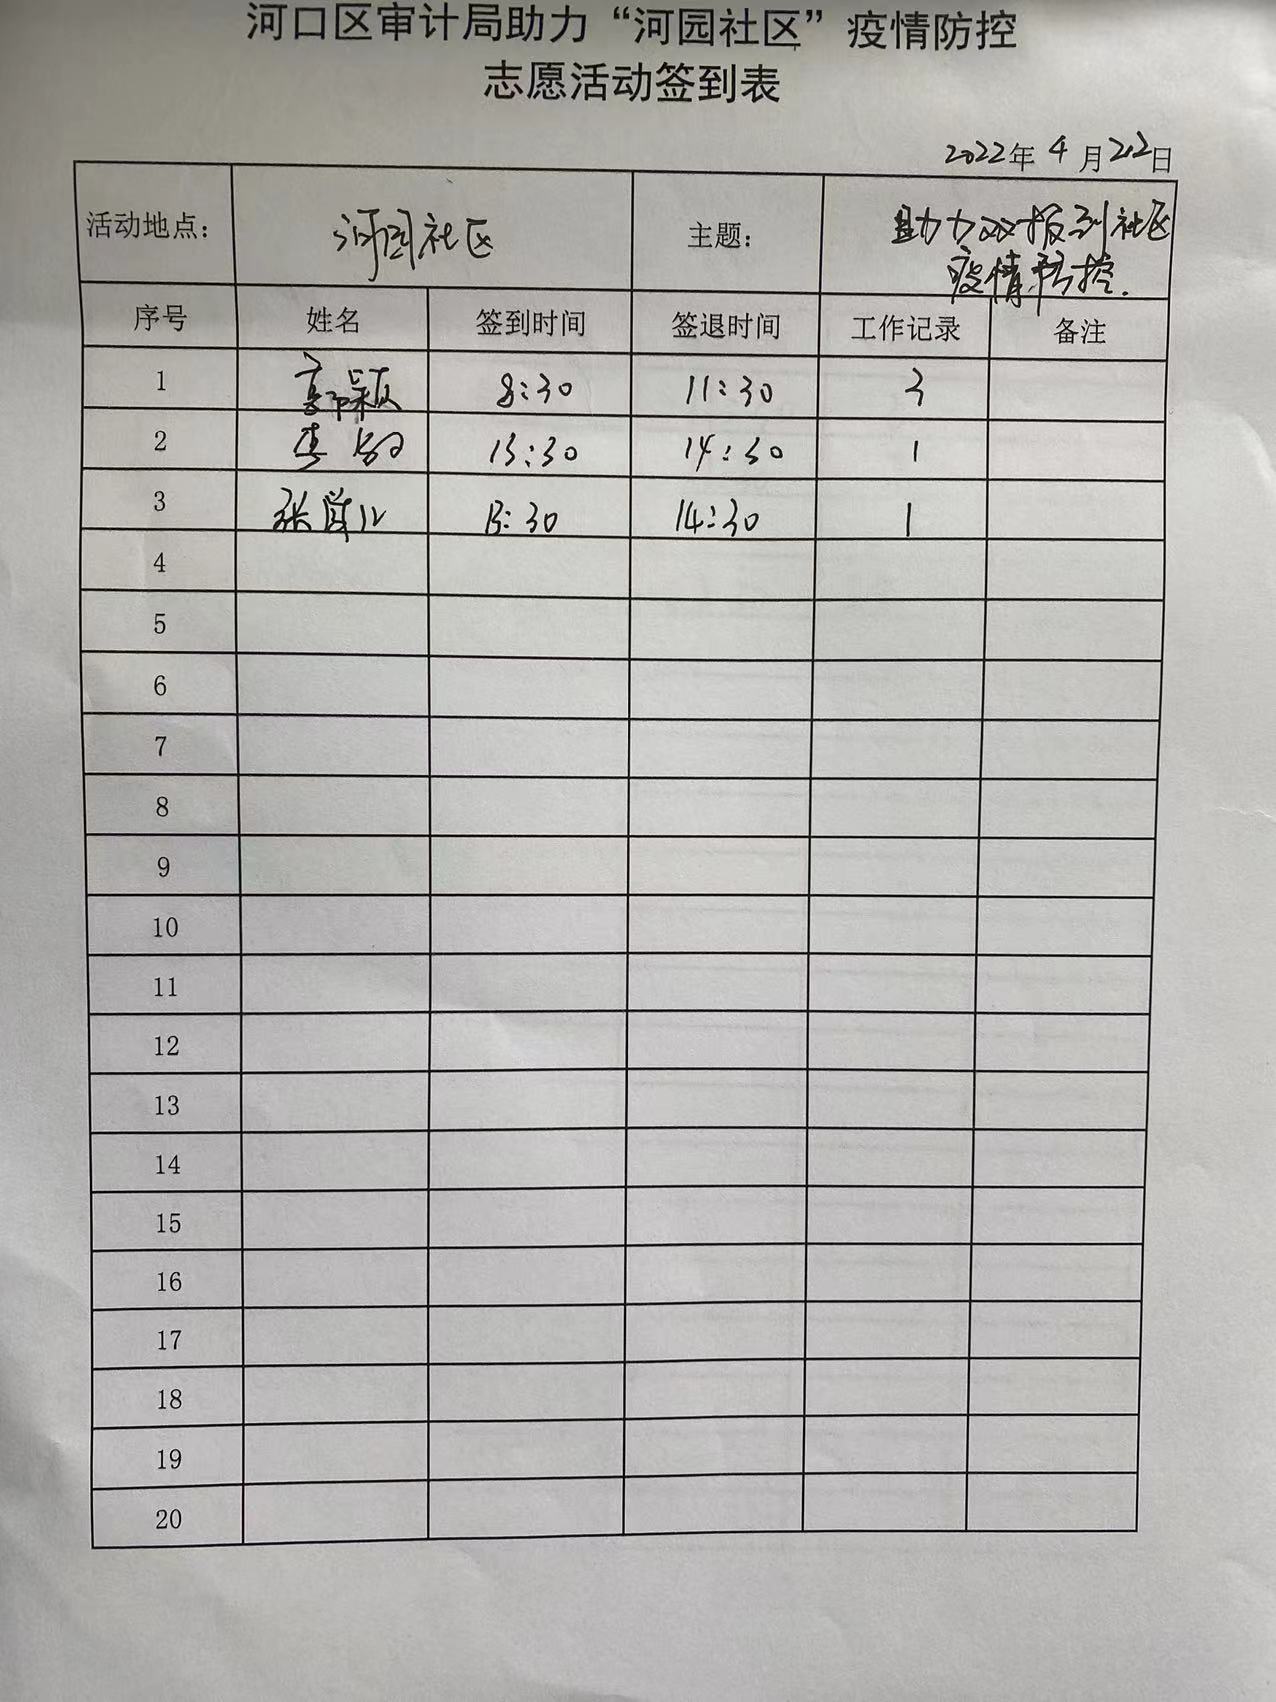 河口区审计局助力“河园社区”疫情防控
志愿活动签到表
2022年 4 月22日
活动地点： 河园社区 主题： 助力双报到社区
疫情防控.
序号 姓名 签到时间 签退时间 工作记录 备注
1 8:30 11:30 3
2 李 13:30 14:30 1
3 张 13:30 14:30 1
4
5
6
7
8
9
10
11
12
13
14
15
16
17
18
19
20